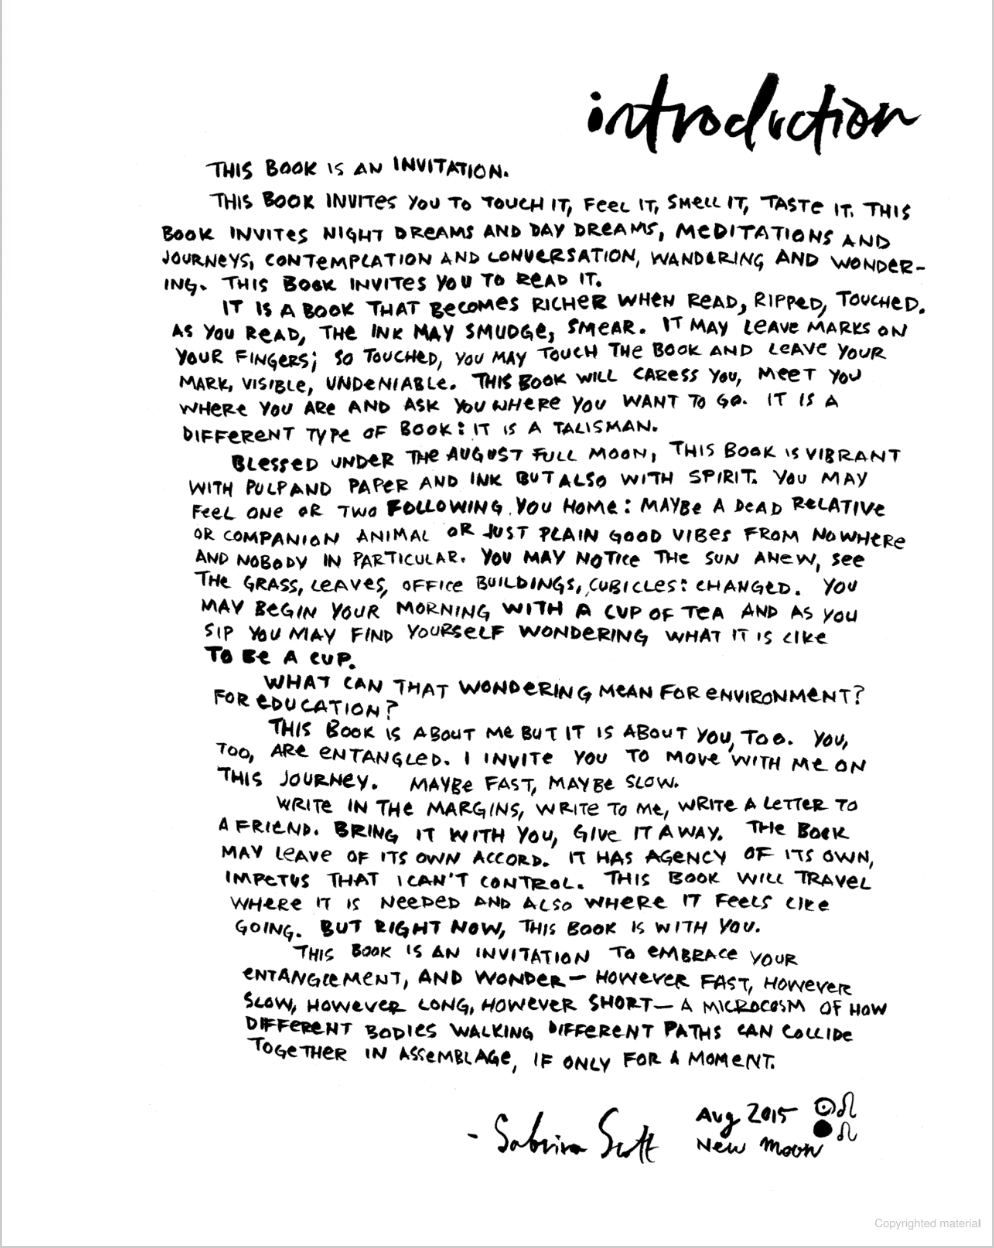 introduction
THIS BOOK IS AN INVITATION.
THIS BOOK INVITES YOU TO TOUCH IT, FEEL IT, SMELL IT, TASTE IT. THIS
BOOK INVITES NIGHT DREAMS AND DAY DREAMS, MEDITATIONS AND
JOURNEYS, CONTEMPLATION AND CONVERSATION, WANDERING AND WONDER-
ING. THIS BOOK INVITES YOU TO READ IT.
IT IS A BOOK THAT BECOMES RICHER WHEN READ, RIPPED, TOUCHED.
AS YOU READ, THE INK MAY SMUDGE, SMEAR. IT MAY LEAVE MARKS ON
YOUR FINGERS; SO TOUCHED, YOU MAY TOUCH THE BOOK AND LEAVE YOUR
MARK, VISIBLE, UNDENIABLE. THIS BOOK WILL CARESS YOU, MEET YOU
WHERE YOU ARE AND ASK YOU WHERE YOU WANT TO GO. IT IS A
DIFFERENT TYPE OF BOOK: IT IS A TALISMAN.
BLESSED UNDER THE AUGUST FULL MOON, THIS BOOK IS VIBRANT
WITH PULP AND PAPER AND INK BUT ALSO WITH SPIRIT. YOU MAY
FEEL ONE OR TWO FOLLOWING YOU HOME: MAYBE A DEAD RELATIVE
OR COMPANION ANIMAL OR JUST PLAIN GOOD VIBES FROM NOWHERE
AND NOBODY IN PARTICULAR. YOU MAY NOTICE THE SUN ANEW, SEE
THE GRASS, LEAVES, OFFICE BUILDINGS, CUBICLES: CHANGED. YOU
MAY BEGIN YOUR MORNING WITH A CUP OF TEA AND AS YOU
SIP YOU MAY FIND YOURSELF WONDERING WHAT IT IS LIKE
TO BE A CUP.
WHAT CAN THAT WONDERING MEAN FOR ENVIRONMENT?
FOR EDUCATION?
THIS BOOK IS ABOUT ME BUT IT IS ABOUT YOU, TOO. YOU,
TOO, ARE ENTANGLED. I INVITE YOU TO MOVE WITH ME ON
THIS JOURNEY. MAYBE FAST, MAYBE SLOW.
WRITE IN THE MARGINS, WRITE TO ME, WRITE A LETTER TO
A FRIEND. BRING IT WITH YOU, GIVE IT AWAY. THE BOOK
MAY LEAVE OF ITS OWN ACCORD. IT HAS AGENCY OF ITS OWN,
IMPETUS THAT I CAN'T CONTROL. THIS BOOK WILL TRAVEL
WHERE IT IS NEEDED AND ALSO WHERE IT FEELS LIKE
GOING. BUT RIGHT NOW, THIS BOOK IS WITH YOU.
THIS BOOK IS AN INVITATION TO EMBRACE YOUR
ENTANGLEMENT, AND WONDER — HOWEVER FAST, HOWEVER
SLOW, HOWEVER LONG, HOWEVER SHORT — A MICROCOSM OF HOW
DIFFERENT BODIES WALKING DIFFERENT PATHS CAN COLLIDE
TOGETHER IN ASSEMBLAGE, IF ONLY FOR A MOMENT.
- Sabrina Scott Aug 2015 ☉♌
New Moon ●♌
Copyrighted material